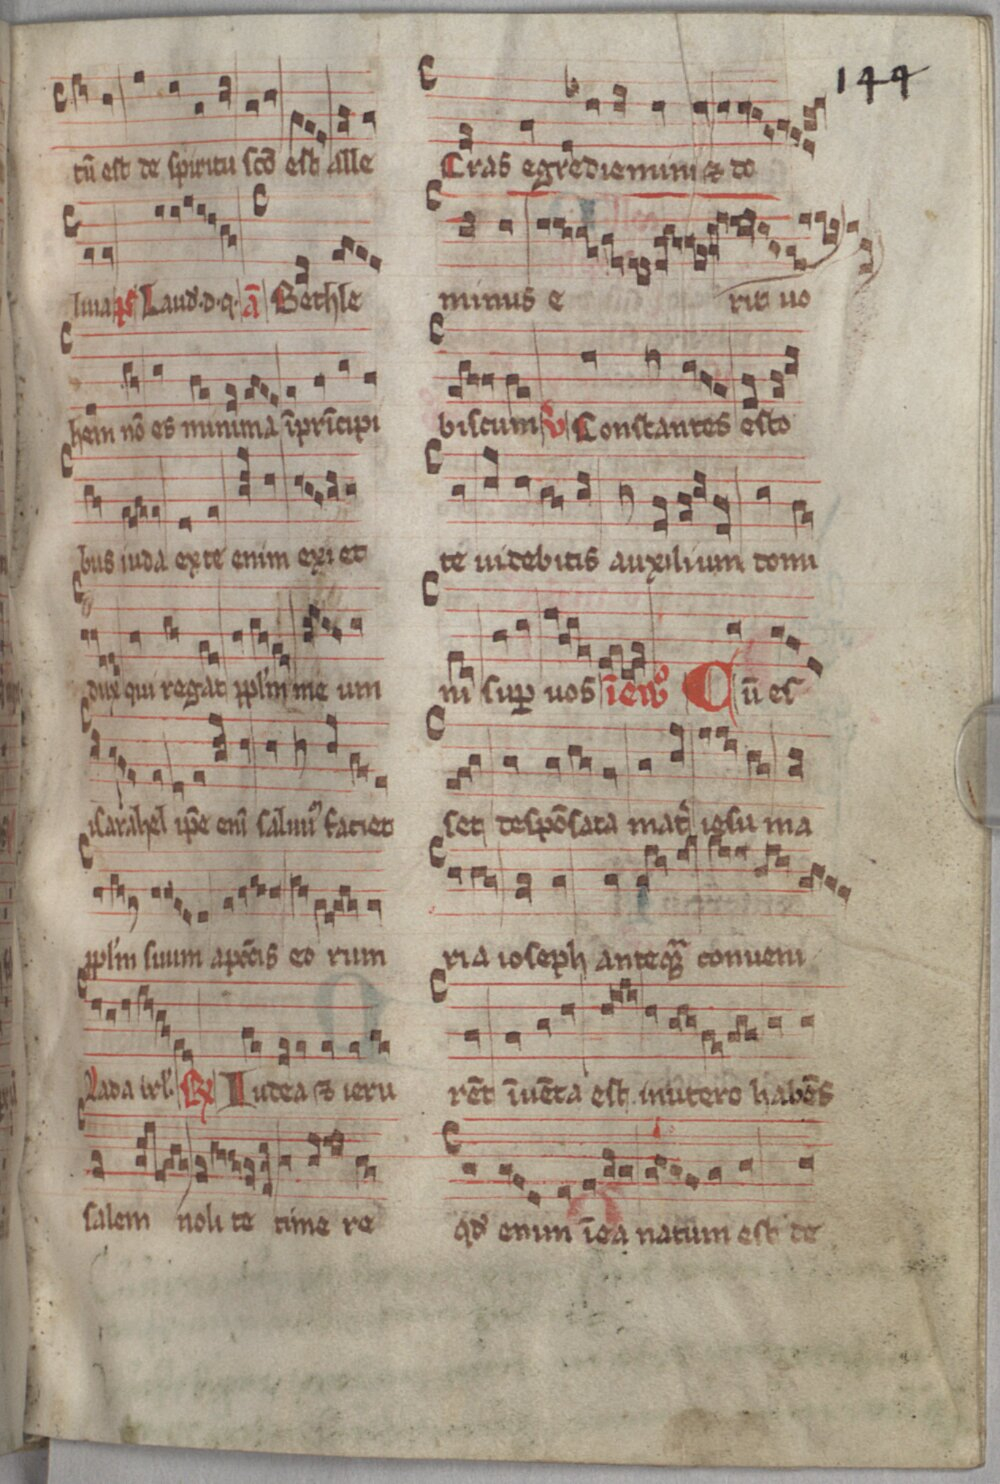 144
tū est de spiritu scō est alle
luia ps̄ Laud. d. q. ā Bethle
hem nō es minima īprīcipi
bus iuda ex te enim exi et
dux qui regat pplm me um
israhel ip̄e enī saluū faciet
pplm suum a peccīs eo rum
irl. R̄ Iudea ⁊ ieru
salem noli te time re
Cras egrediemini ⁊ do
minus e rit uo
biscum v̄ Constantes esto
te uidebitis auxilium domi
ni sup uos Cū es
set despōsata mat iesu ma
ria ioseph anteq̄ conueni
rēt īuēta est in utero habēs
qd enim īea natum est de